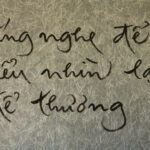 ắng nghe để
ểu nhìn lạ
ể thương